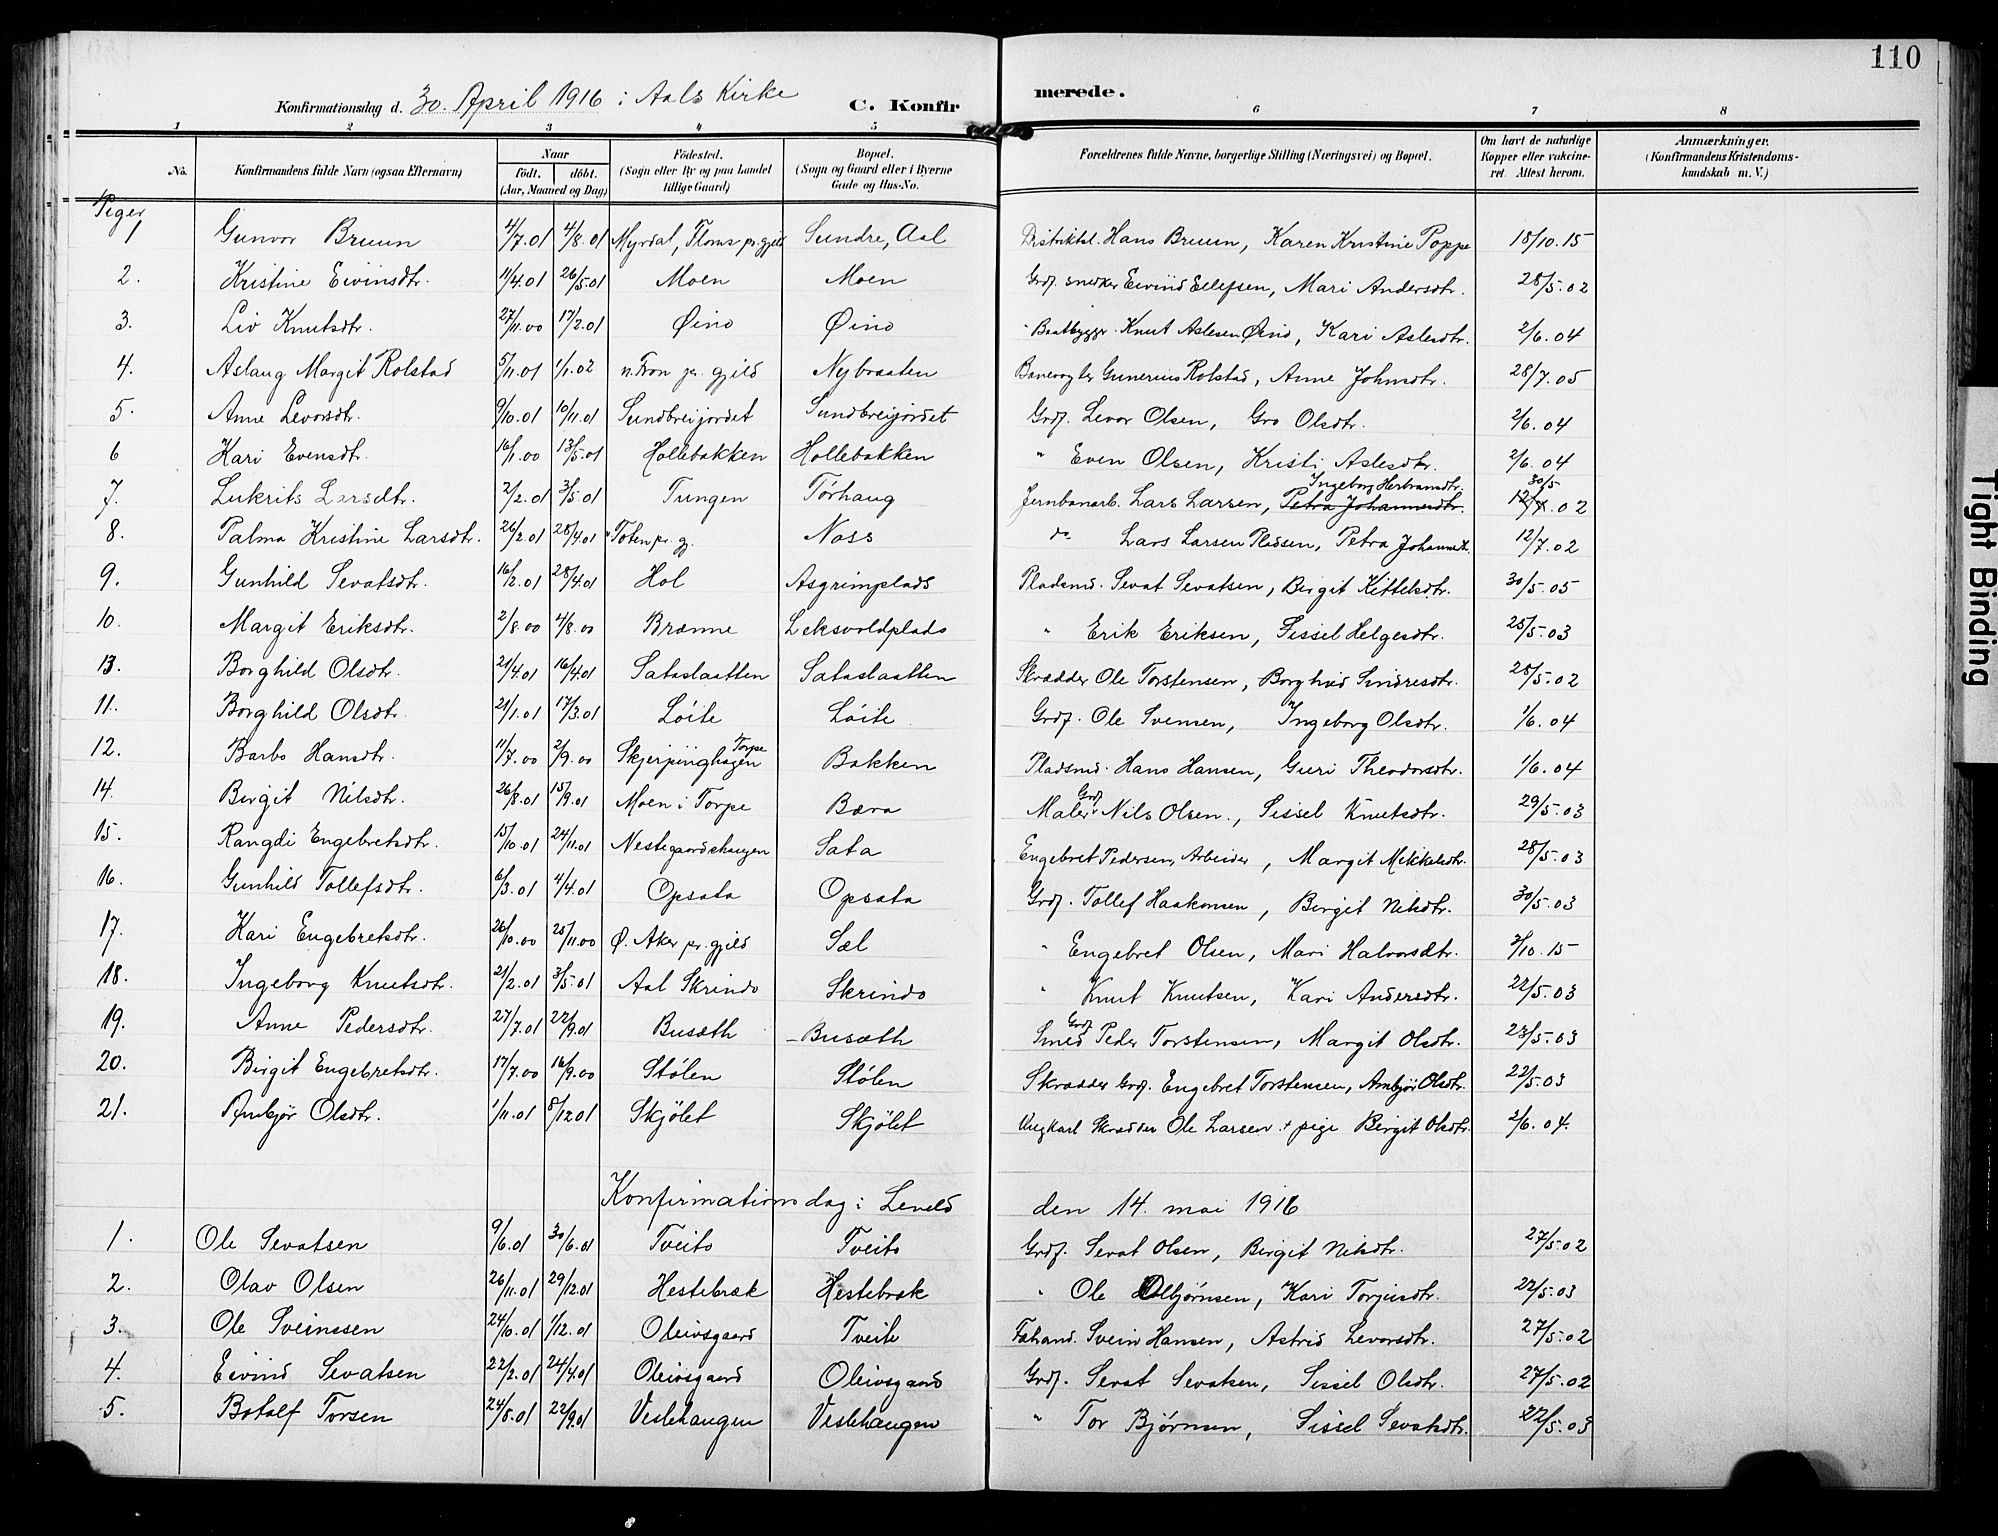 110
Konfirmationsdag d. 30. April 1916 i Aals Kirke C. Konfirmerede.
1 2 3 4 5 6 7 8
No. Konfirmandens fulde Navn (ogsaa Efternavn) Naar födt. döbt. (Aar, Maaned og Dag) Födested. (Sogn eller By og paa Landet tillige Gaard) Bopæl. (Sogn og Gaard eller i Byerne Gade og Hus-No. Forældrenes fulde Navne, borgerlige Stilling (Næringsvei) og Bopæl. Om havt de naturlige Kopper eller vakcineret. Attest herom. Anmærkninger. (Konfirmandens Kristendomskundskab m. V.)
Piger
1 Gunvor Bruun 4/7.01 4/8.01 Myrdal, Floms pr.gjeld Sundre, Aal Hans Bruun, Karen Kristine Poppe 18/10.15
2. Kristine Eivinsdtr. 11/4.01 26/5.01 Moen Moen Grdf. snedker Eivind Ellefsen, Mari Andersdtr. 28/5.02
3. Liv Knutsdtr. 27/11.00 17/2.01 Øino Øino " Baatbygger Knut Aslesen Øino, Kari Aslesdtr. 2/6.04
4. Aslaug Margit Rolstad 5/11.01 1/1.02 n. Fron pr. gjeld Nybraaten Gunerius Rolstad, Anne Johnsdtr. 28/7.05
5. Anne Levorsdtr. 9/10.01 10/11.01 Sundbreijordet Sundbreijordet Grdf. Levor Olsen, Gro Olsdtr. 2/6.04
6 Kari Evensdtr. 16/1.00 13/5.01 Hollebakken Hollebakken " Even Olsen, Kristi Aslesdtr. 2/6.04
7. Lukrits Larsdtr. 2/2.01 3/5.01 Tungen Tørhaug Jernbanearb. Lars Larsen, Petra Johannesdtr. Ingeborg Herbrandsdtr. 12/7.02 30/5
8. Palma Kristine Larsdtr. 26/2.01 28/4.01 Toten pr. gj. Noss do Lars Larsen Pladsen, Petra Johannesdtr. 12/7.02
9. Gunhild Sevatsdtr. 16/2.01 28/4.01 Hol Asgrimplads Pladsmd. Sevat Sevatsen, Birgit Kittelsdtr. 30/5.05
10. Margit Eriksdtr. 2/8.00 4/8.00 Brænne Leksvoldplads " Erik Eriksen, Sissel Helgesdtr. 25/5.03
13. Borghild Olsdtr. 21/4.01 16/4.01 Sataslaatten Sataslaatten Skrædder Ole Torstensen, Borghild Sindresdtr. 28/5.02
11. Borghild Olsdtr. 21/1.01 17/3.01 Löite Löite Grdf. Ole Svensen, Ingeborg Olsdtr. 1/6.04
12. Barbo Hansdtr. 11/7.00 2/9.00 Skjerpinghagen Torpe Bakken Pladsmd. Hans Hansen, Guri Theodorsdtr. 1/6.04
14. Birgit Nilsdtr. 26/8.01 15/9.01 Moen i Torpe Bæra Maler Grdf. Nils Olsen, Sissel Knutsdtr. 29/5.03
15. Rangdi Engebretsdtr. 15/10.01 24/11.01 Nestegaardshaugen Sata Engebret Pedersen, Arbeider, Margit Mikkelsdtr. 28/5.03
16. Gunhild Tollefsdtr. 6/3.01 4/4.01 Opsata Opsata Grdf. Tollef Haakonsen, Birgit Nilsdtr. 30/5.03
17. Kari Engebretsdtr. 26/10.00 25/11.00 Ø. Aker pr. gjeld Sæl " Engebret Olsen, Mari Halvorsdtr. 2/10.15
18. Ingeborg Knutsdtr. 21/2.01 3/5.01 Aal Skrindo Skrindo " Knut Knutsen, Kari Andersdtr. 22/5.03
19. Anne Pedersdtr. 27/7.01 22/9.01 Busæth Busæth Smed Grdf. Peder Torstensen, Margit Olsdtr. 23/5.03
20. Birgit Engebretsdtr. 17/7.00 16/9.00 Stölen Stölen Skrædder Grdf. Engebret Torstensen, Ambjör Olsdtr. 22/5.03
21. Ambjør Olsdtr. 1/11.01 8/12.01 Skjölet Skjölet Ungkarl Skrædder Ole Larsen + pige Birgit Olsdtr. 2/6.04.
Konfirmationsdag i Leveld den 14. mai 1916
1. Ole Sevatsen 9/6.01 30/6.01 Tveito Tveito Grdf. Sevat Olsen, Birgit Nilsdtr. 27/5.02
2. Olav Olsen 26/11.01 29/12.01 Hestebræk Hestebræk " Ole Olbjørnsen, Kari Torjusdtr. 22/5.03
3. Ole Sveinssen 24/10.01 1/12.01 Oleivsgaard Tveite Svein Hansen, Astrid Levorsdtr. 27/5.02
4. Eivind Sevatsen 22/2.01 24/4.01 Oleivsgaard Oleivsgaard Grdf. Sevat Sevatsen, Sissel Olsdtr. 27/5.02
5. Botolf Torsen 24/5.01 22/9.01 Veslehaugen Veslehaugen " Tor Bjørnsen, Sissel Sevatsdtr. 22/5.03
Tight Binding